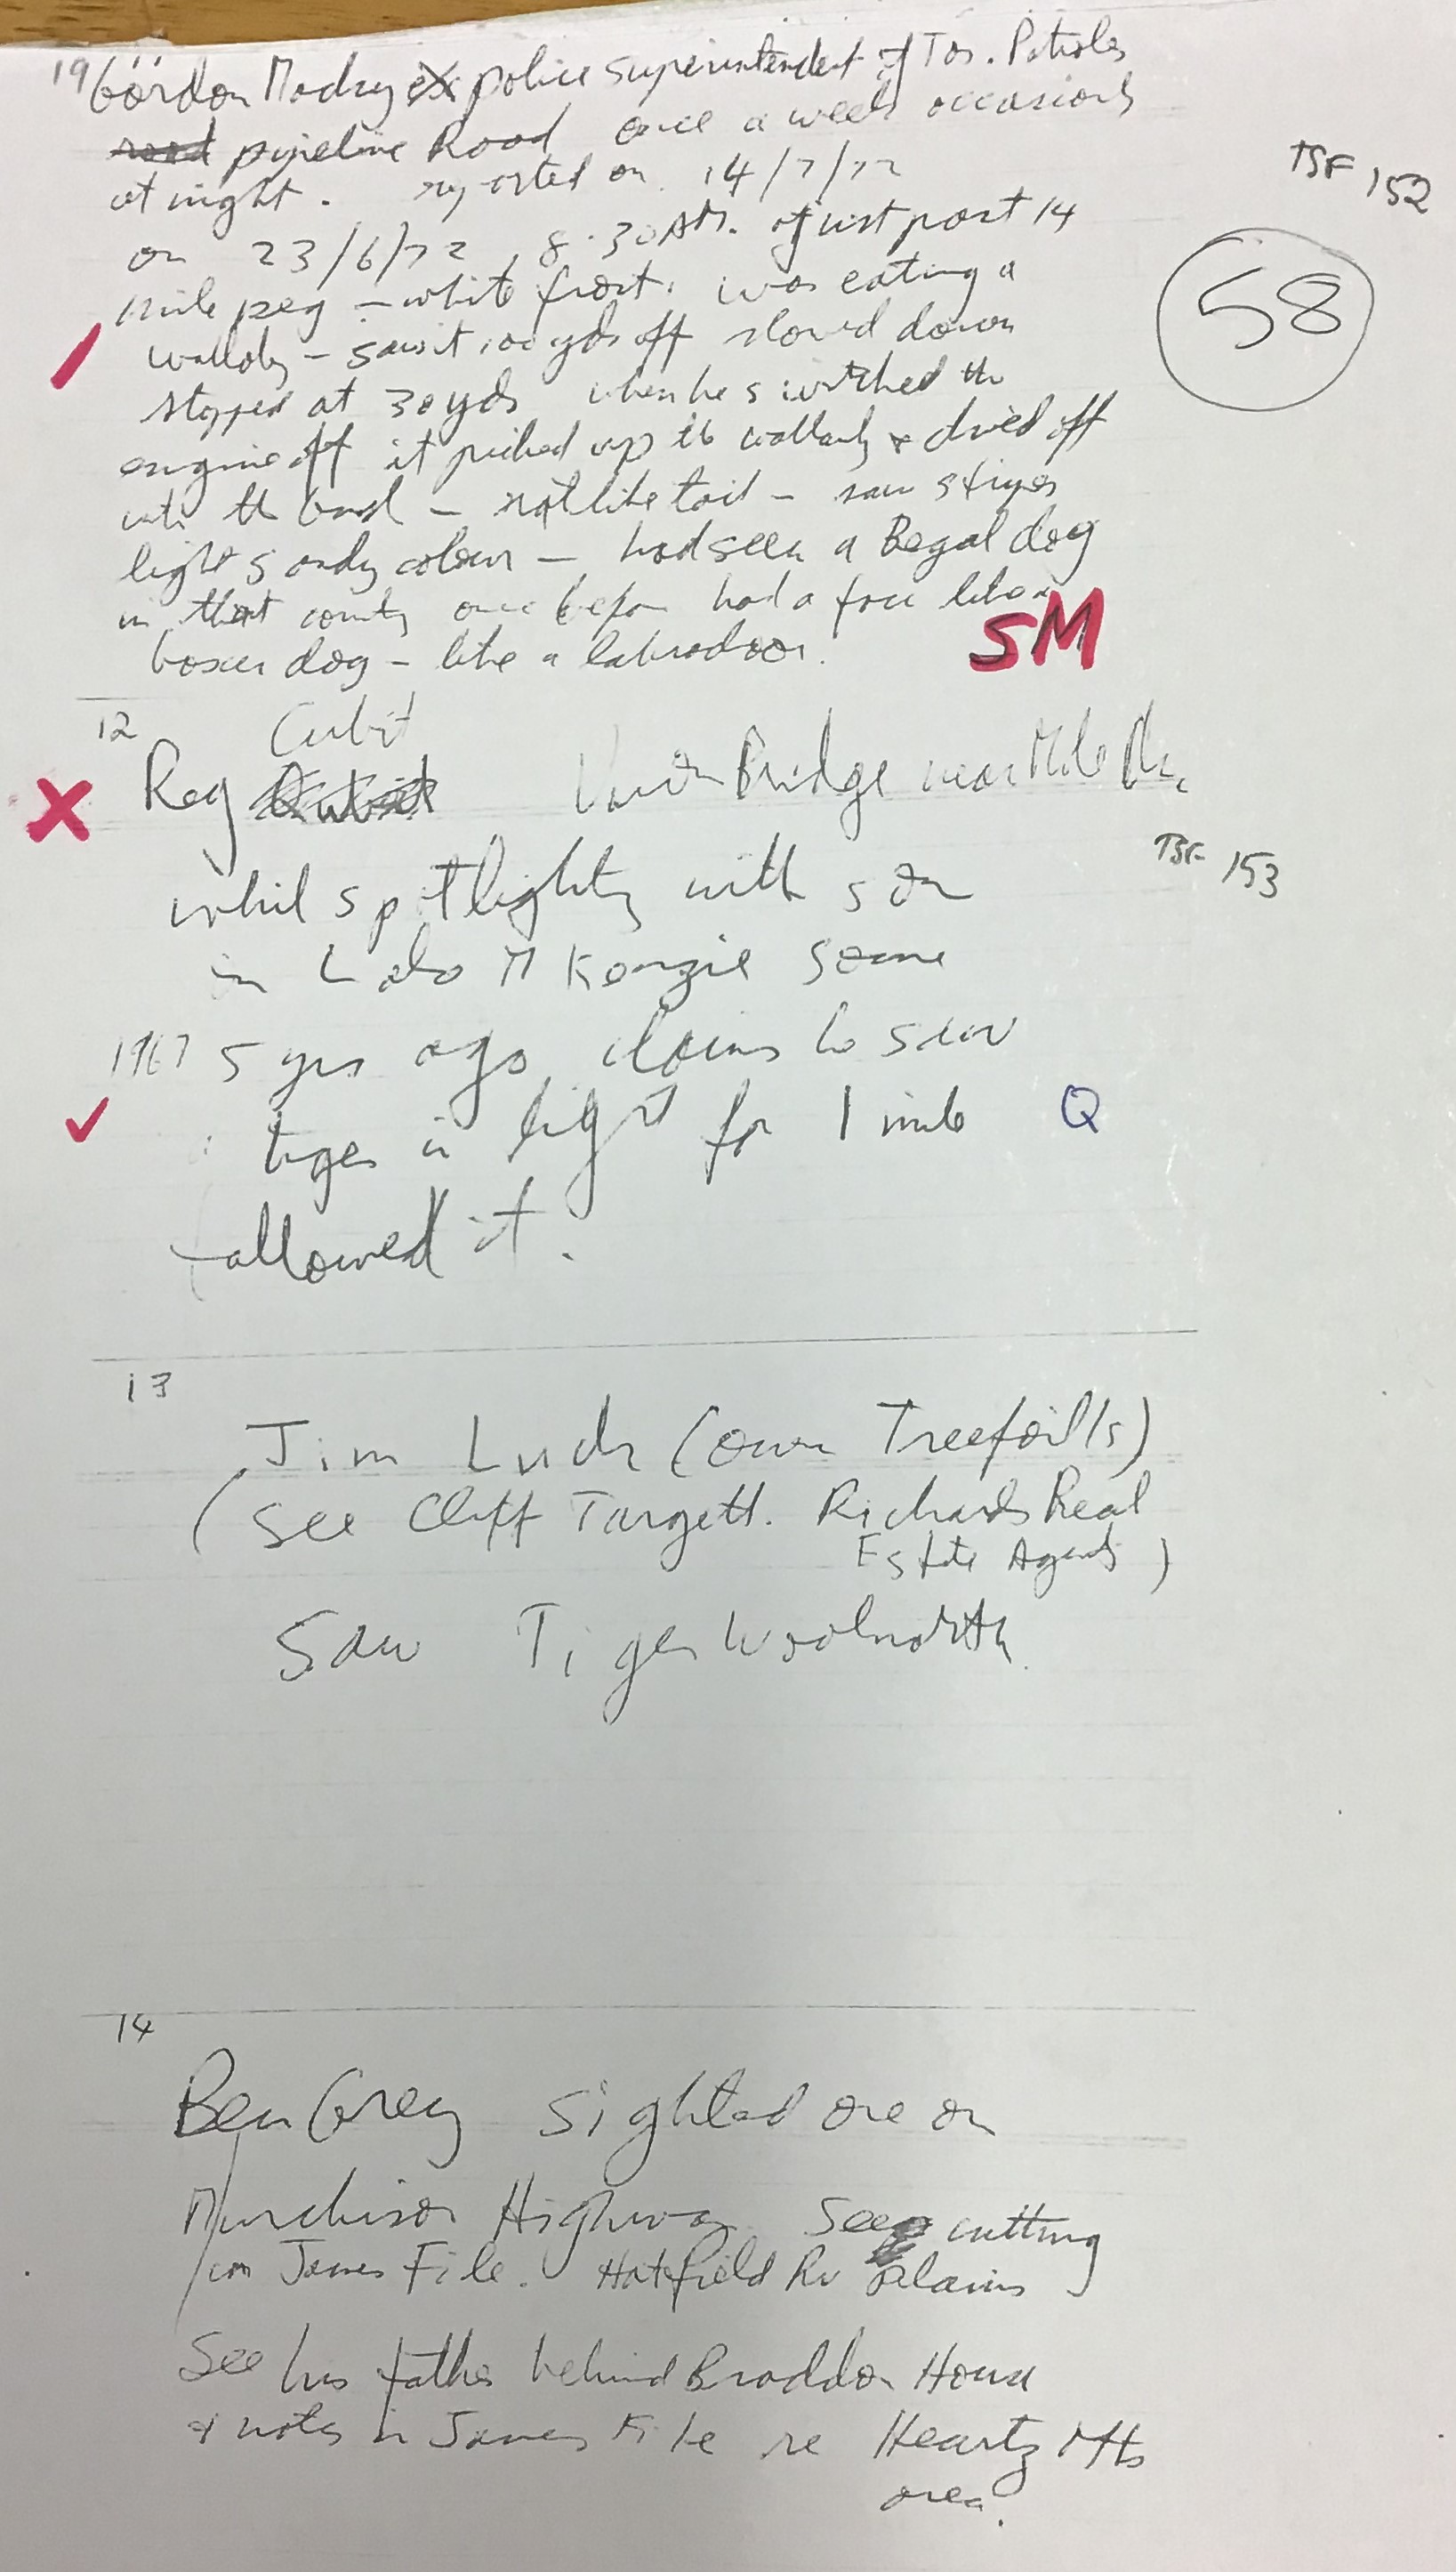 19 Gordon ex police superintendent of Tas. Patroles
road pipeline Road once a week occasionly
at night. reported on 14/7/72
on 23/6/72 8.30 AM. just past 14
mile peg – white frost. was eating a
wallaby – saw it 100 yds off slowed down
stopped at 30 yds when he switched the
engine off it picked up the wallaby &  off
into the bush – ratlike tail – saw stripes
light sandy colour – had seen a dog
in that county once before had a face like a
boxer dog – like a labradoor.
SM
TSF 152
58
12
Cubit
Reg Bridge near
whil spotlighty with son
in M Kenzie some
1967 5 yrs ago claims to saw
tiger in light for 1 mile Q
fallowed it.
TSF 153
13
Jim (own Treefoills)
(See Cliff Targett. Richards Real
Estate Agents)
Saw Tiger Woolnorth.
14
Ben Grey sighted one on
Murchison Highway See cutting
in James File. Hatfield Rv Plains
See his father behind Braddon House
& notes in James File re Heartz Mts
area.